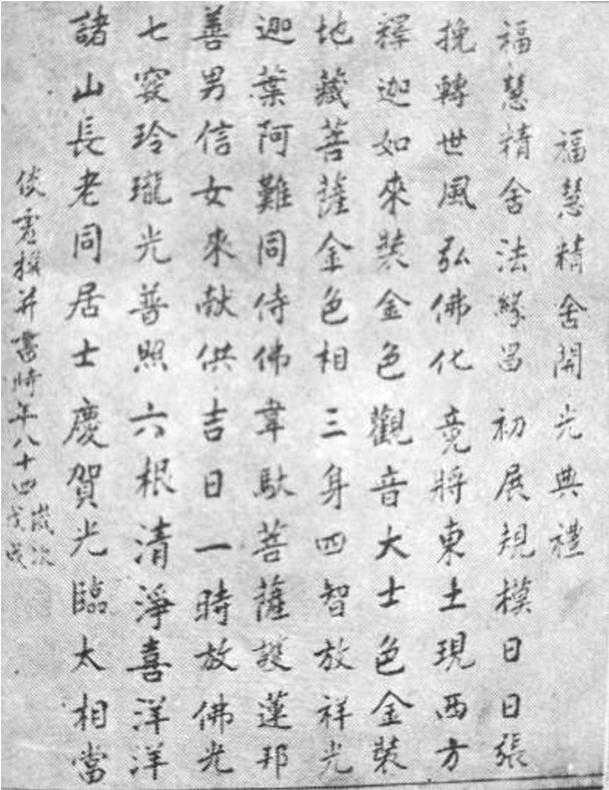 福慧精舍開光典禮
福慧精舍法緣昌初展規模日日張
挽轉世風弘佛化竟將東土現西方
釋迦如來裝金色觀音大士色金裝
地藏菩薩金色相三身四智放祥光
迦葉阿難同侍佛韋馱菩薩護蓮邦
善男信女來献供吉日一時放佛光
七窔玲瓏光普照六根清淨喜洋洋
諸山長老同居士慶賀光臨太相當
倓虛撰并書時年八十四歲次戊戌